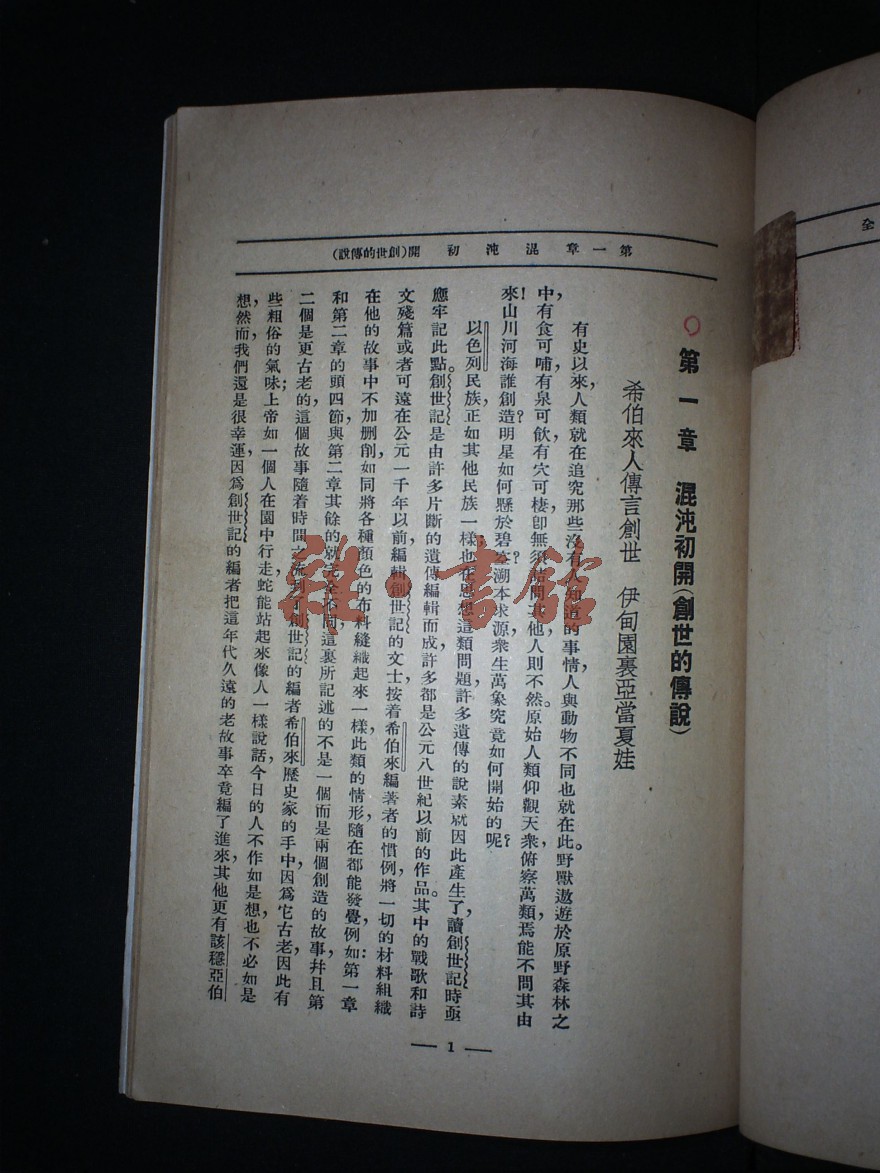 全
第一章 混沌初開(創世的傳說)
第一章 混沌初開(創世的傳說)
希伯來人傳言創世 伊甸園裏亞當夏娃
有史以來,人類就在追究那些沒有人知道的事情。人與動物不同也就在此。野獸遨遊於原野森林之
中,有食可哺,有泉可飲,有穴可棲,卽無須詰問其他,人則不然。原始人類仰觀天衆,俯察萬類,焉能不問其由
來!山川河海誰創造?明星如何懸於碧空?溯本求源,衆生萬象究竟如何開始的呢?
以色列民族,正如其他民族一樣,也在思想這類問題,許多遺傳的說素就因此產生了,讀創世記時亟
應牢記此點。創世記是由許多片斷的遺傳編輯而成,許多都是公元八世紀以前的作品。其中的戰歌和詩
文殘篇或者可遠在公元一千年以前,編輯創世記的文士按着希伯來編著者的慣例,將一切的材料組織
在他的故事中不加删削,如同將各種顏色的布料縫織起來一樣,此類的情形隨在都能發覺,例如:第一章
和第二章的頭四節與第二章其餘的就完全不同,這裏所記述的不是一個而是兩個創造的故事,幷且第
二個是更古老的,這個故事隨着時間之流到了創世記的編者希伯來歷史家的手中,因爲它古老因此有
些粗俗的氣味;上帝如一個人在園中行走,蛇能站起來像人一樣說話,今日的人不作如是想,也不必如是
想,然而,我們還是很幸運,因爲創世記的編者把這年代久遠的老故事卒竟編了進來,其他更有該穩亞伯
— 1 —
雜·書館